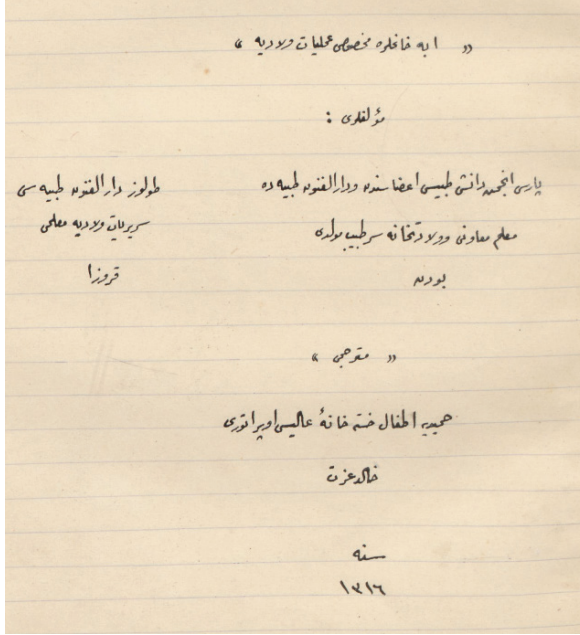 « ابه خانملره مخصوص عملیات ولادیه »
مؤلفلری :
پارس انجمن دانش طبیسی اعضاسندن ودارالفنون طبیه ده
معلم معاونی وولادتخانه سرطبیب مولدی
بودن
طولوز دارالفنون طبیه سی
سریریات ولادیه معلمی
قروزا
« مترجمی »
حمیدیه اطفال خسته خانهٔ عالیسی اوپراتوری
خالد عزت
سنه
١٣١٦